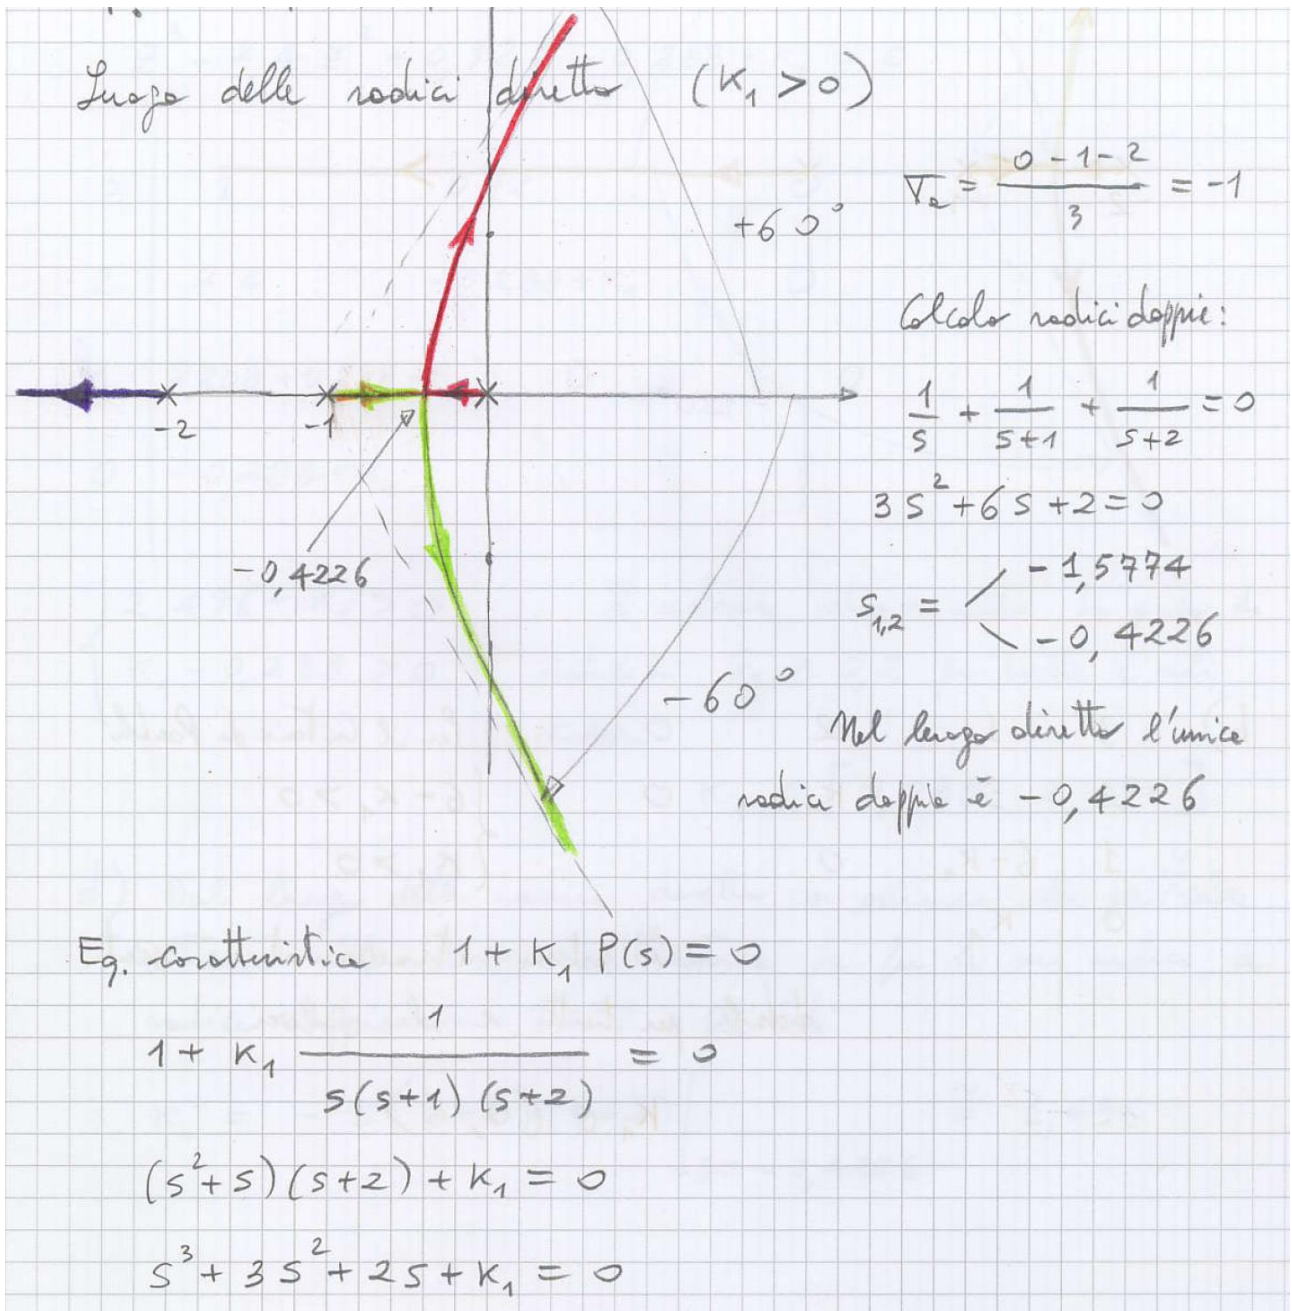 Luogo delle radici diretto (K₁ > 0)
σₐ = (0 - 1 - 2)/3 = -1
+60°
Calcolo radici doppie:
1/s + 1/(s+1) + 1/(s+2) = 0
-2 -1
3s² + 6s + 2 = 0
-0,4226
s₁,₂ =
-1,5774
-0,4226
-60°
Nel luogo diretto l'unica
radice doppia è -0,4226
Eq. caratteristica 1 + K₁ P(s) = 0
1 + K₁ 1/(s(s+1)(s+2)) = 0
(s²+s)(s+2) + K₁ = 0
s³ + 3s² + 2s + K₁ = 0